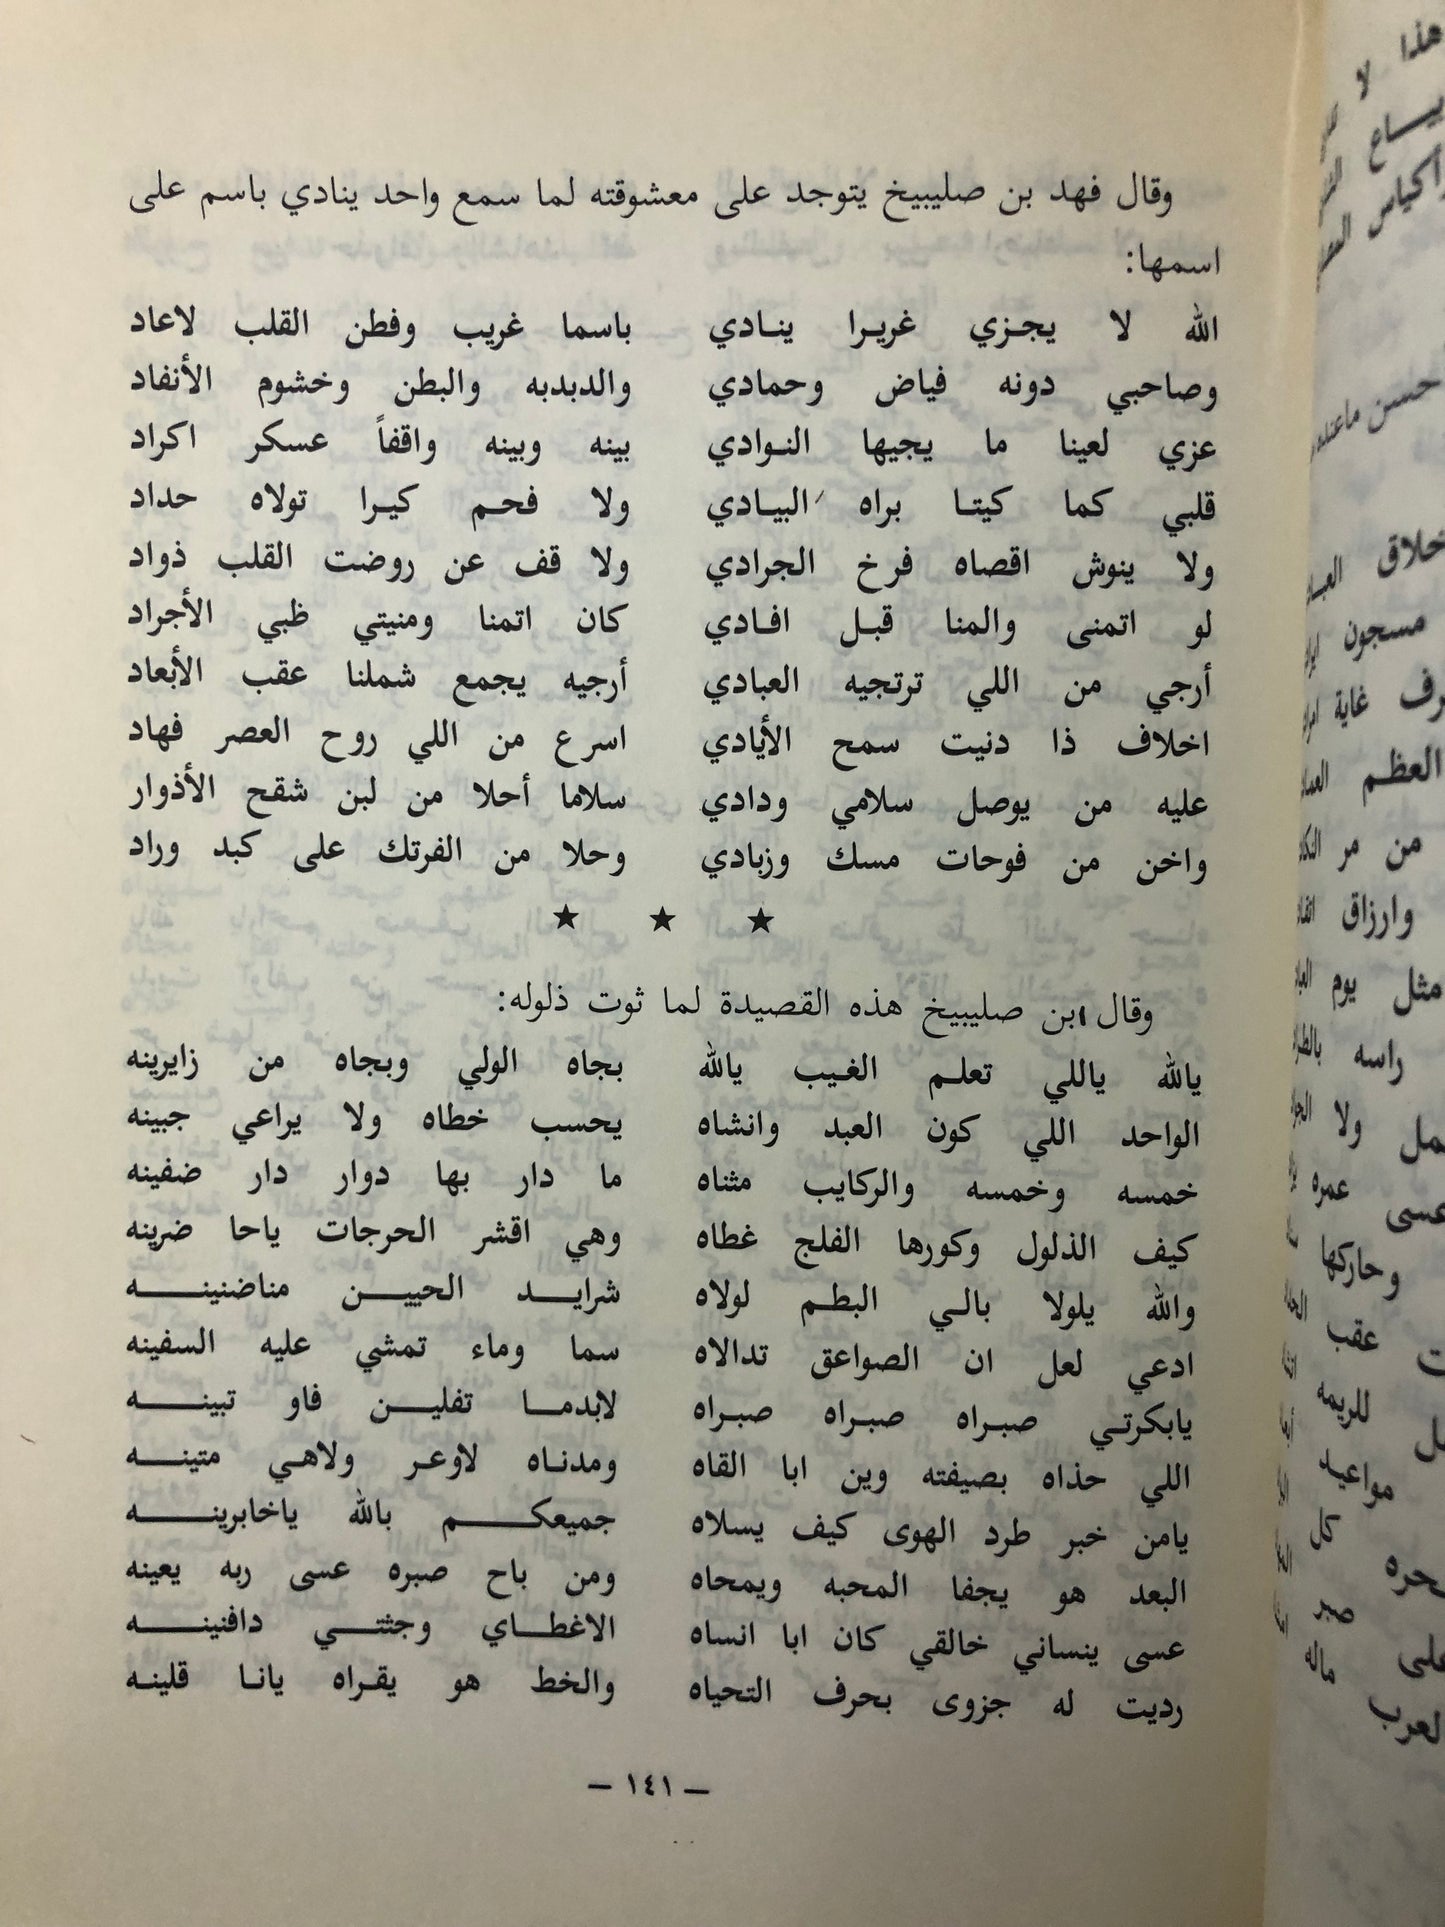 وقال فهد بن صليبيخ يتوجد على معشوقته لما سمع واحد ينادي باسم على
اسمها:
الله لا يجزي غريرا ينادي باسما غريب وفطن القلب لاعاد
وصاحبي دونه فياض وحمادي والدبدبه والبطن وخشوم الأنفاد
عزي لعينا ما يجيها النوادي بينه وبينه واقفاً عسكر اكراد
قلبي كما كيتا براه البيادي ولا فحم كيرا تولاه حداد
ولا ينوش اقصاه فرخ الجرادي ولا قف عن روضت القلب ذواد
لو اتمنى والمنا قبل افادي كان اتمنا ومنيتي ظبي الأجراد
أرجي من اللي ترتجيه العبادي أرجيه يجمع شملنا عقب الأبعاد
اخلاف ذا دنيت سمح الأيادي اسرع من اللي روح العصر فهاد
عليه من يوصل سلامي ودادي سلاما أحلا من لبن شقح الأذوار
واخن من فوحات مسك وزبادي وحلا من الفرتك على كبد وراد
★ ★ ★
وقال ابن صليبيخ هذه القصيدة لما ثوت ذلوله:
يالله ياللي تعلم الغيب يالله بجاه الولي وبجاه من زايرينه
الواحد اللي كون العبد وانشاه يحسب خطاه ولا يراعي جبينه
خمسه وخمسه والركايب مثناه ما دار بها دوار دار ضفينه
كيف الذلول وكورها الفلج غطاه وهي اقشر الحرجات ياحا ضرينه
والله يلولا بالي البطم لولاه شرايد الحيين مناضنينه
ادعي لعل ان الصواعق تدالاه سما وماء تمشي عليه السفينه
يابكرتي صبراه صبراه صبراه لابدما تفلين فاو تبينه
اللي حذاه بصيفته وين ابا القاه ومدناه لاوعر ولاهي متينه
يامن خبر طرد الهوى كيف يسلاه جميعكم بالله ياخابرينه
البعد هو يجفا المحبه ويمحاه ومن باح صبره عسى ربه يعينه
عسى ينساني خالقي كان ابا انساه الاغطاي وجثتي دافنينه
رديت له جزوى بحرف التحياه والخط هو يقراه يانا قلينه
— ١٤١ —